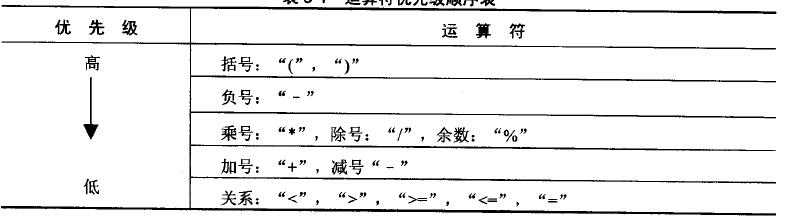 表 3-1 运算符优先级顺序表
优 先 级 运 算 符
高 括号：“(”，“)”
负号：“-”
乘号：“*”，除号：“/”，余数：“%”
加号：“+”，减号“-”
低 关系：“<”，“>”，“>=”，“<=”、“=”